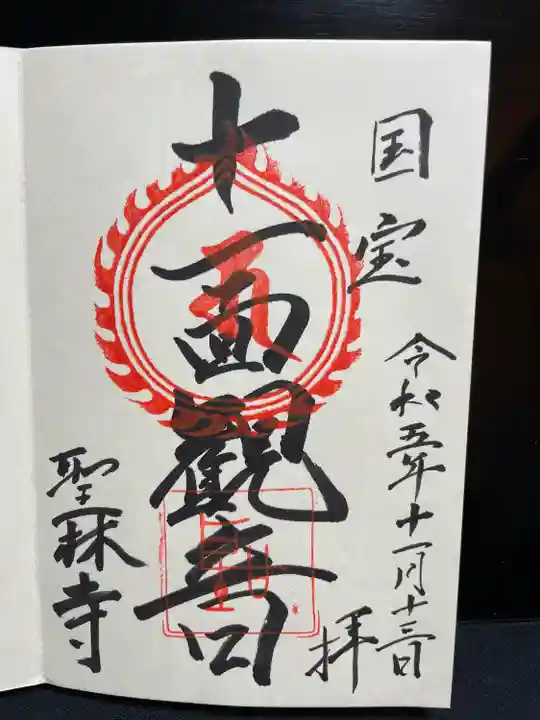 国宝
令和五年十一月十三日
拝
十一面観音
聖林寺